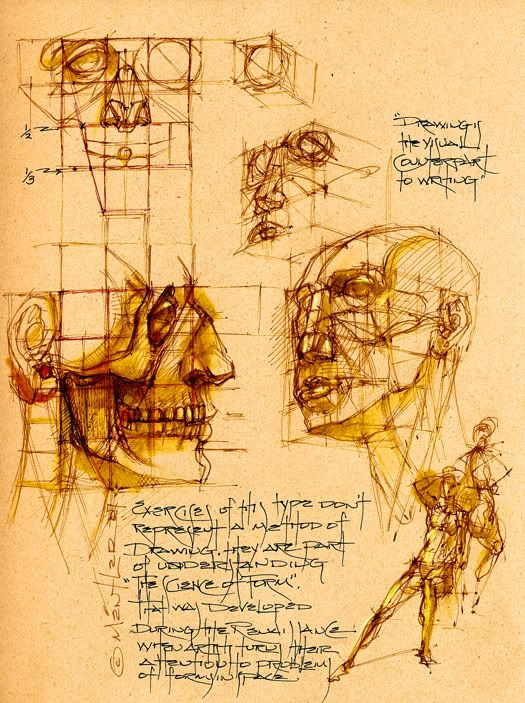 "DRAWING IS
THE VISUAL
COUNTERPART
TO WRITING"
1/2
1/3
EXERCISES OF THIS TYPE DON'T
REPRESENT A METHOD OF
DRAWING. THEY ARE PART
OF UNDERSTANDING
"THE SCIENCE OF FORM".
THAT WAS DEVELOPED
DURING THE RENAISSANCE
WHEN ARTIST TURN THEIR
ATTENTION TO PROBLEMS
OF FORMS IN SPACE.
© MENTLER